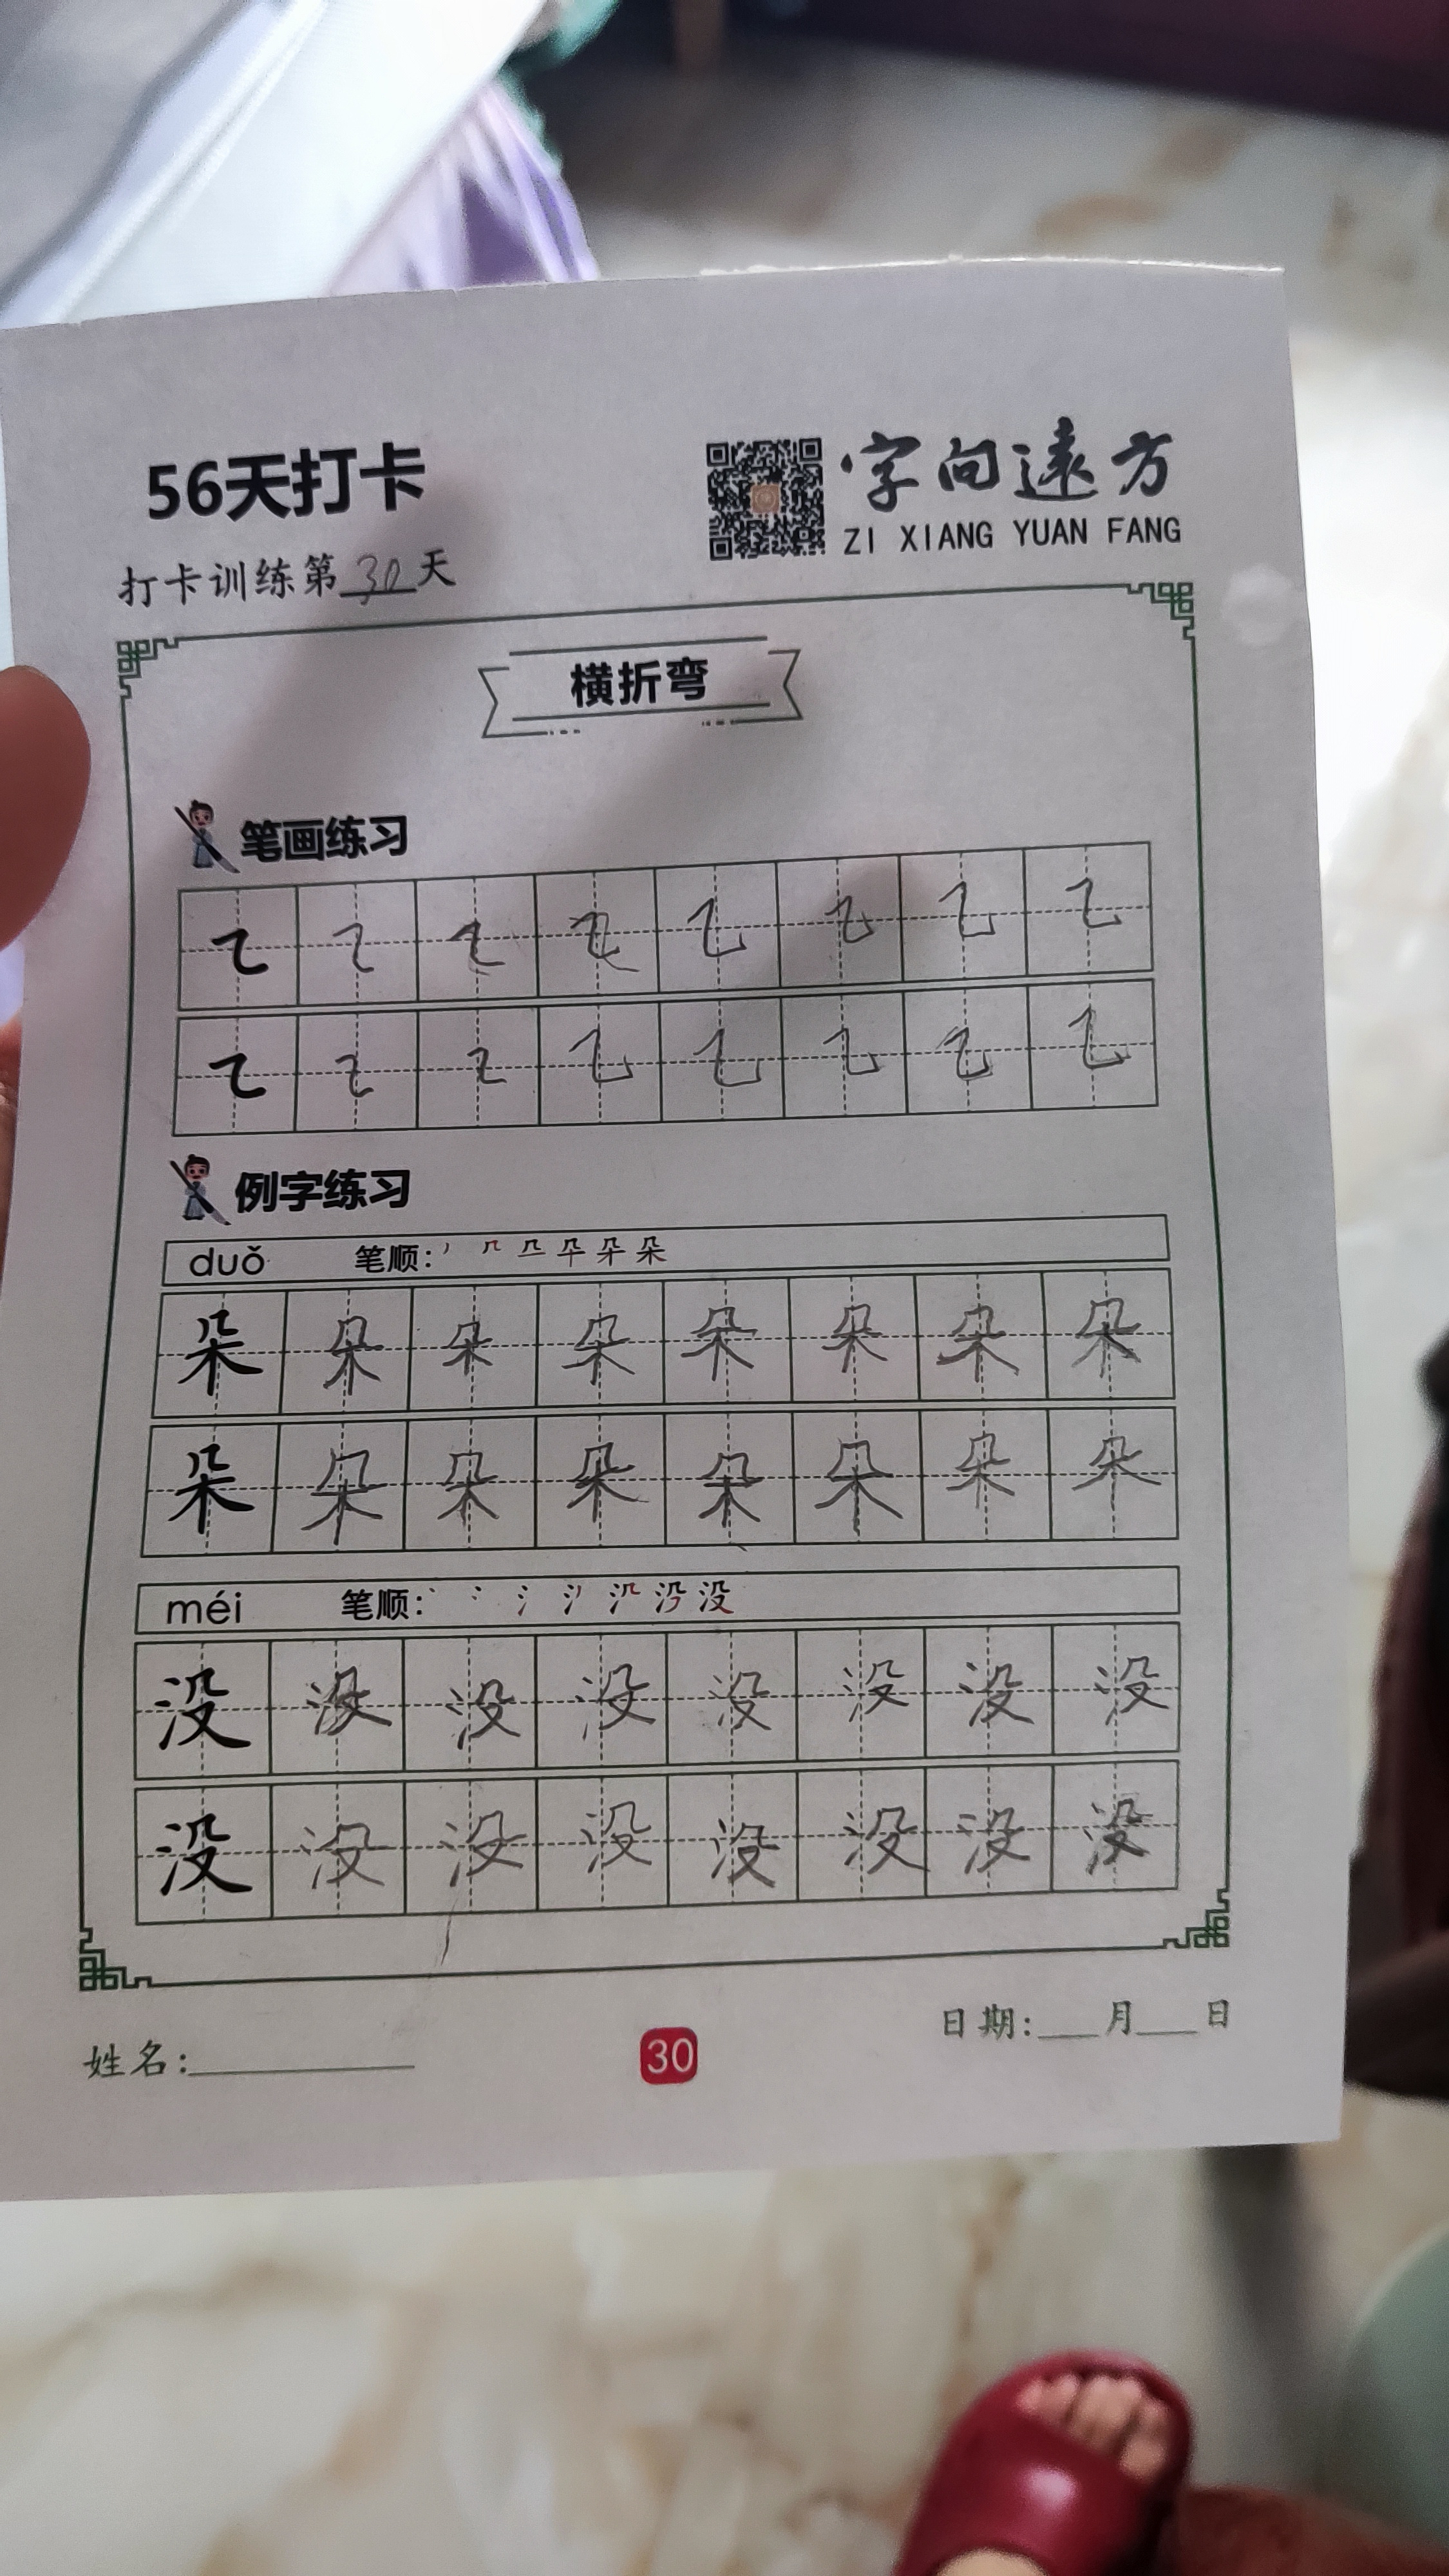 56天打卡
字向遠方
ZI XIANG YUAN FANG
打卡训练第30天
横折弯
笔画练习
㇍ ㇍ ㇍ ㇍ ㇍ ㇍ ㇍ ㇍
㇍ ㇍ ㇍ ㇍ ㇍ ㇍ ㇍ ㇍
例字练习
duǒ 笔顺:
朵 朵 朵 朵 朵 朵 朵 朵
朵 朵 朵 朵 朵 朵 朵 朵
méi 笔顺:
没 没 没 没 没 没 没 没
没 没 没 没 没 没 没 没
姓名:
30
日期:___月___日